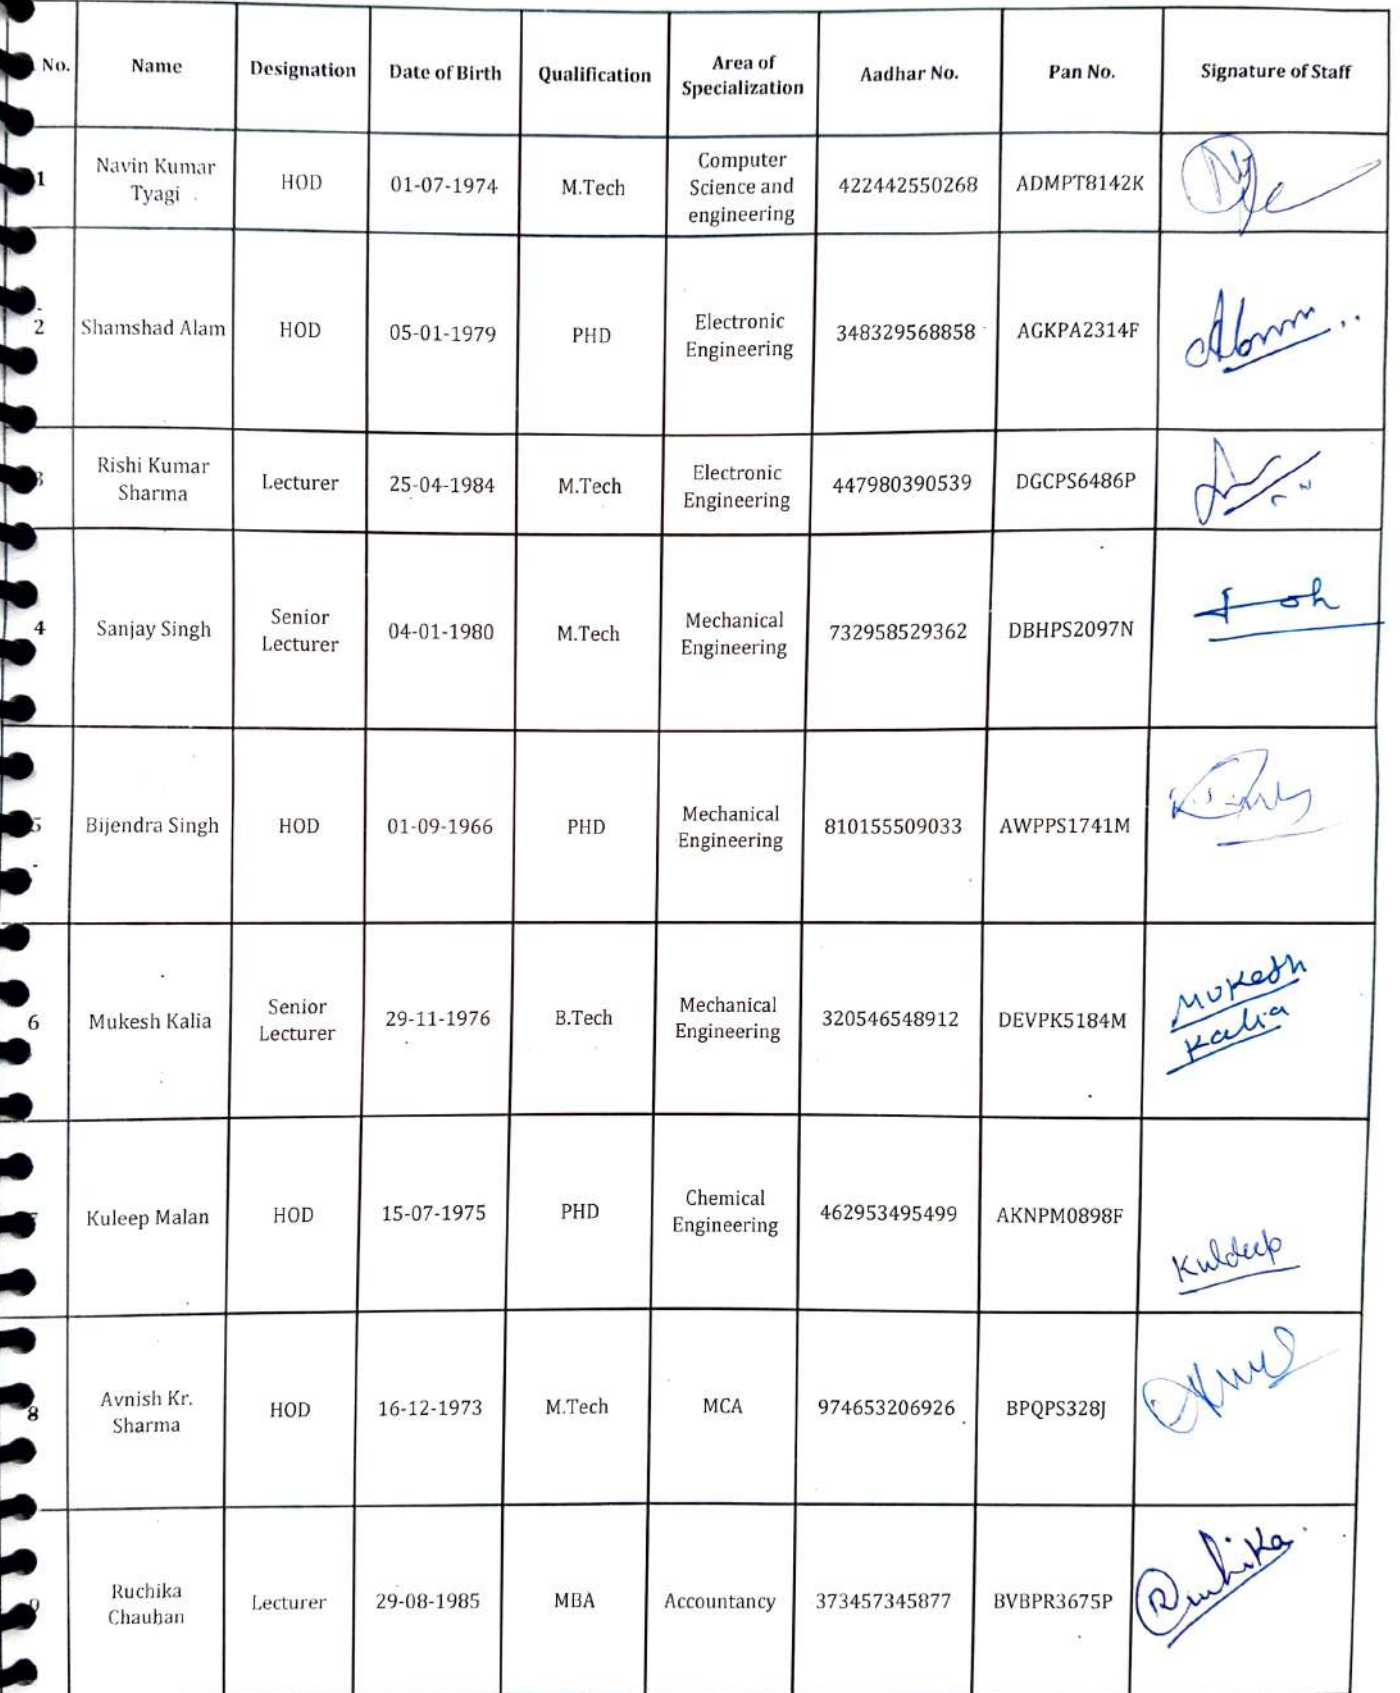 No.
Name
Designation
Date of Birth
Qualification
Area of
Specialization
Aadhar No.
Pan No.
Signature of Staff
1
Navin Kumar
Tyagi
HOD
01-07-1974
M.Tech
Computer
Science and
engineering
422442550268
ADMPT8142K
2
Shamshad Alam
HOD
05-01-1979
PHD
Electronic
Engineering
348329568858
AGKPA2314F
3
Rishi Kumar
Sharma
Lecturer
25-04-1984
M.Tech
Electronic
Engineering
447980390539
DGCPS6486P
4
Sanjay Singh
Senior
Lecturer
04-01-1980
M.Tech
Mechanical
Engineering
732958529362
DBHPS2097N
5
Bijendra Singh
HOD
01-09-1966
PHD
Mechanical
Engineering
810155509033
AWPPS1741M
6
Mukesh Kalia
Senior
Lecturer
29-11-1976
B.Tech
Mechanical
Engineering
320546548912
DEVPK5184M
Mukesh
Kalia
Kuleep Malan
HOD
15-07-1975
PHD
Chemical
Engineering
462953495499
AKNPM0898F
Kuldeep
8
Avnish Kr.
Sharma
HOD
16-12-1973
M.Tech
MCA
974653206926
BPQPS328J
9
Ruchika
Chauhan
Lecturer
29-08-1985
MBA
Accountancy
373457345877
BVBPR3675P
Ruchika